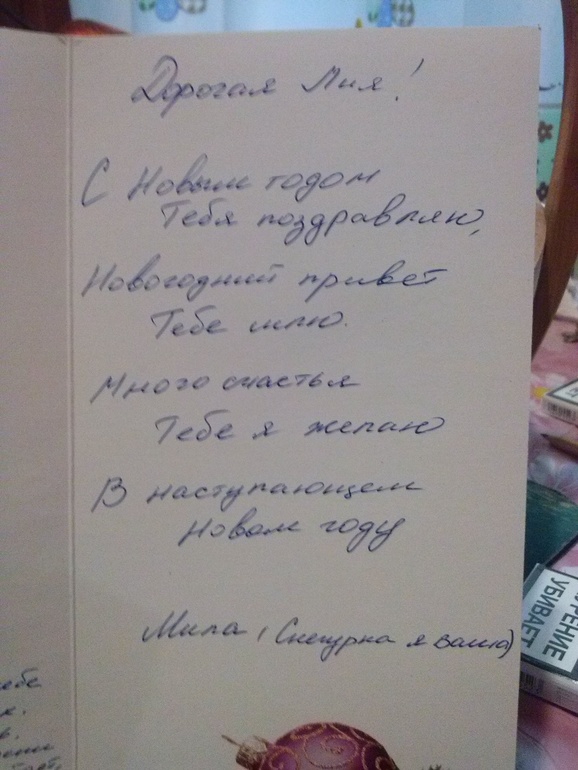 Дорогая Лия!
С Новым годом
Тебя поздравляю,
Новогодний привет
Тебе шлю.
Много счастья
Тебе я желаю
В наступающем
Новом году
Мила (Снегурка я ваша)
УБИВАЕТ